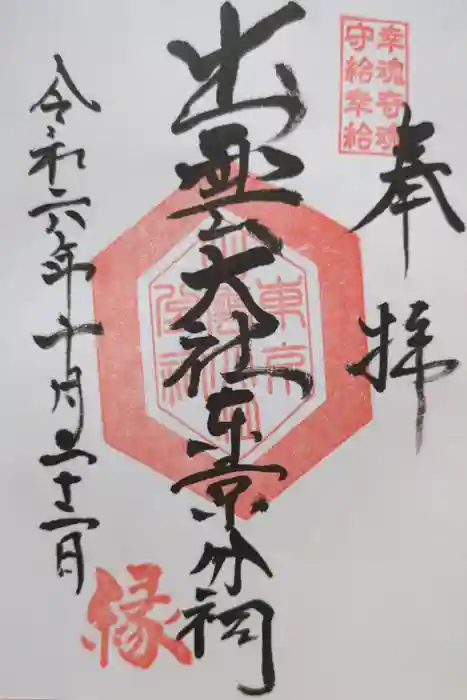 幸魂奇魂
守給幸給
奉拝
出雲大社東京分祠
令和六年十月二十一日
縁